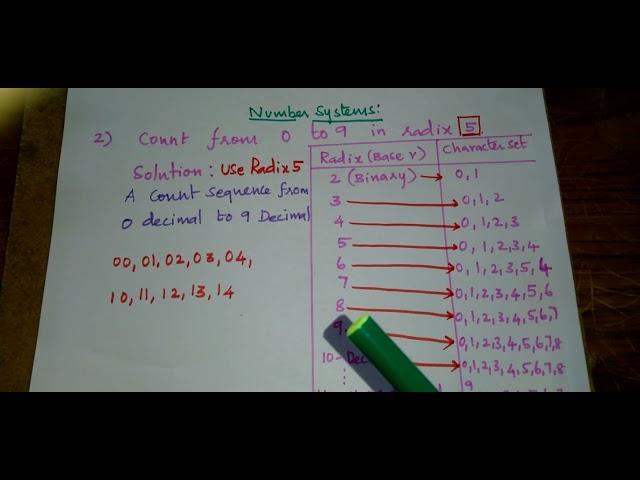 Number Systems:
2) Count from 0 to 9 in radix 5.
Solution: Use Radix 5
A Count sequence from
0 decimal to 9 Decimal
00, 01, 02, 03, 04,
10, 11, 12, 13, 14
Radix (Base r) Character set
2 (Binary) → 0, 1
3 → 0, 1, 2
4 → 0, 1, 2, 3
5 → 0, 1, 2, 3, 4
6 → 0, 1, 2, 3, 5, 4
7 → 0, 1, 2, 3, 4, 5, 6
8 → 0, 1, 2, 3, 4, 5, 6, 7
9 → 0, 1, 2, 3, 4, 5, 6, 7, 8
10 - Dec → 0, 1, 2, 3, 4, 5, 6, 7, 8
9